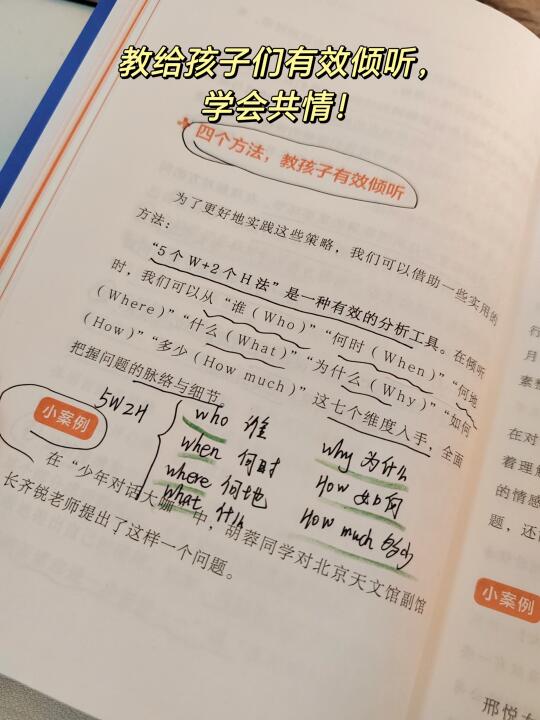 教给孩子们有效倾听，
学会共情！
四个方法，教孩子有效倾听
为了更好地实践这些策略，我们可以借助一些实用的
方法：
“5个W+2个H法”是一种有效的分析工具。在倾听
时，我们可以从“谁（Who）”“何时（When）”“何地
（Where）”“什么（What）”“为什么（Why）”“如何
（How）”“多少（How much）”这七个维度入手，全面
把握问题的脉络与细节
5W2H
who 谁
when 何时
where 何地
what 什么
why 为什么
How 如何
How much 多少
小案例
在“少年对话大咖”中，胡蓉同学对北京天文馆副馆
长齐锐老师提出了这样一个问题。
行
月
素
在对
着理解
的情感
题，还
小案例
邢悦